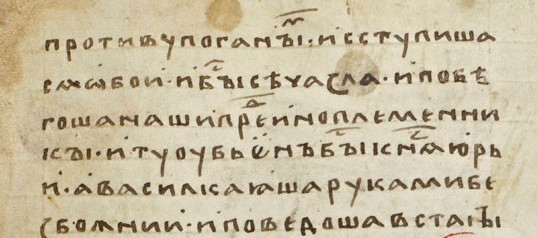 противупоганꙑⷨ·исступиша
сѧѡбои·ибⷭꙑсѣчазла·ипобѣ
гошанашипреⷣиноплеменни
кꙑ·итуоубьенъбⷭꙑкнⷤѧюрь
и·авасилкаꙗшарукамибе
збожнии·иповедошавстанꙑ